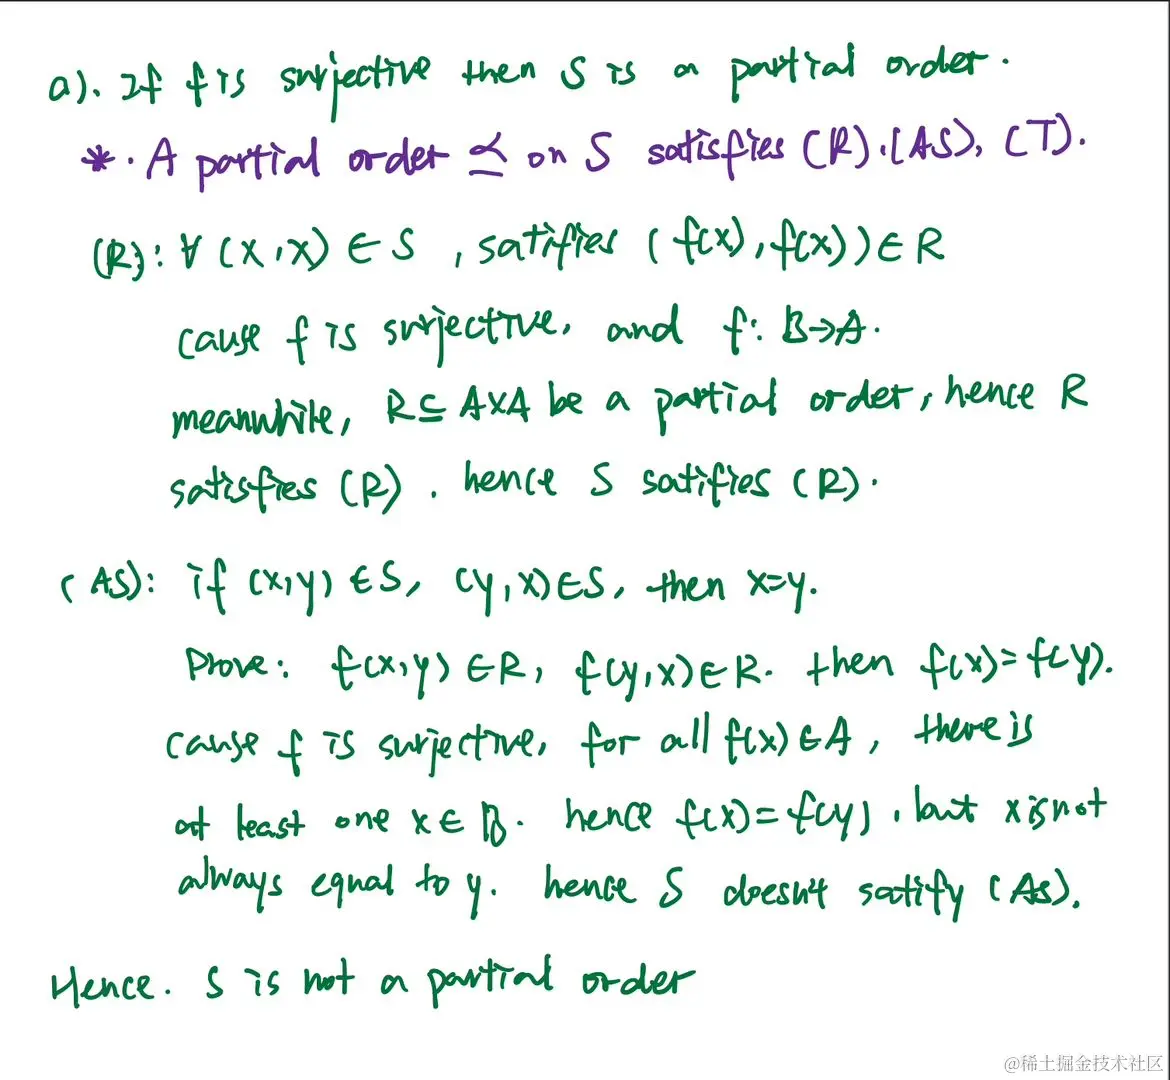 a). If f is surjective then S is a partial order.
*. A partial order ⪯ on S satisfies (R).(AS), (T).
(R): ∀ (x,x) ∈ S , satifies ( f(x), f(x)) ∈ R
cause f is surjective, and f: B→A.
meanwhile, R⊆ A×A be a partial order, hence R
satisfies (R) . hence S satifies (R).
(AS): if (x,y) ∈S, (y,x)∈S, then x=y.
Prove: f(x,y) ∈R, f(y,x)∈R. then f(x)=f(y).
cause f is surjective, for all f(x)∈A, there is
at least one x∈ B. hence f(x)=f(y), but x is not
always equal to y. hence S doesn't satify (AS).
Hence. S is not a partial order
@稀土掘金技术社区